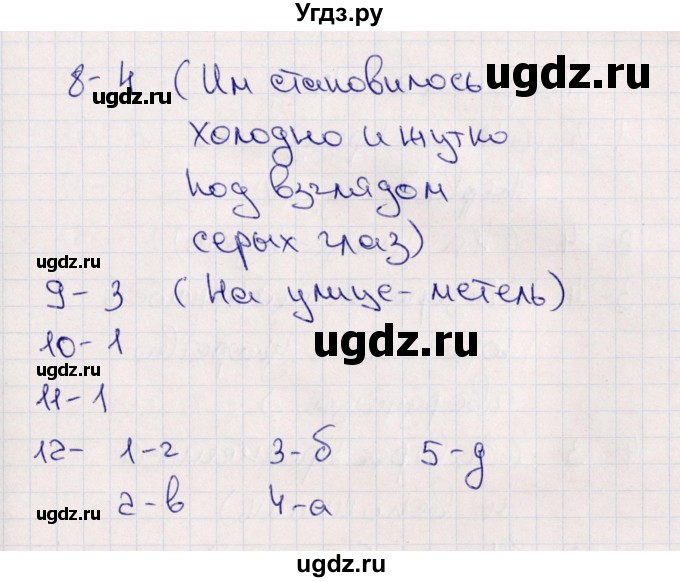 Угдз.ру
8-4 (Им становилось
холодно и жутко
под взглядом
серых глаз)
9-3 (На улице - метель)
10-1
11-1
12- 1-г 3-б 5-д
2-в 4-а
ugdz.ru
ugdz.ru
ugdz.ru
ugdz.ru
ugdz.ru
ugdz.ru
ugdz.ru
ugdz.ru